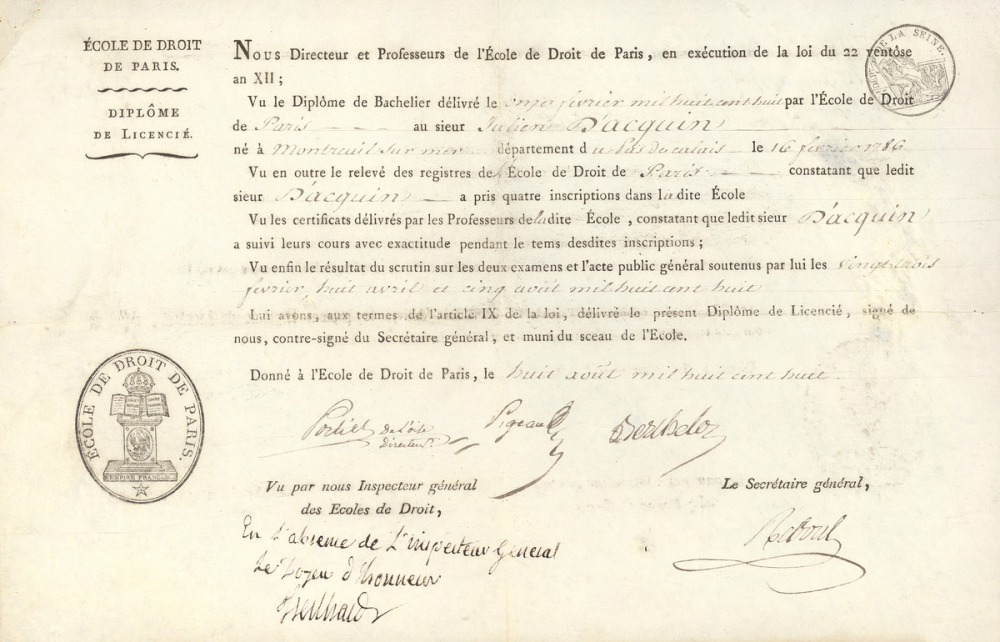 ÉCOLE DE DROIT
DE PARIS.
DIPLÔME
DE LICENCIÉ.
DE LA SEINE.
NOUS Directeur et Professeurs de l'École de Droit de Paris, en exécution de la loi du 22 ventôse
an XII;
Vu le Diplôme de Bachelier délivré le onze février mil huit cent huit par l'École de Droit
de Paris au sieur Julien D'acquin
né à Montreuil sur mer département du Pas de calais le 16 février 1786
Vu en outre le relevé des registres de l'École de Droit de Paris constatant que ledit
sieur D'acquin a pris quatre inscriptions dans la dite École
Vu les certificats délivrés par les Professeurs de la dite École, constatant que ledit sieur D'acquin
a suivi leurs cours avec exactitude pendant le tems desdites inscriptions;
Vu enfin le résultat du scrutin sur les deux examens et l'acte public général soutenus par lui les vingt trois
février, huit avril et cinq août mil huit cent huit
Lui avons, aux termes de l'article IX de la loi, délivré le présent Diplôme de Licencié, signé de
nous, contre-signé du Secrétaire général, et muni du sceau de l'Ecole.
Donné à l'Ecole de Droit de Paris, le huit août mil huit cent huit
ÉCOLE DE DROIT DE PARIS.
EMPIRE FRANÇAIS
Portiez de l'oise Pigeau Berthelot
Directeur
Vu par nous Inspecteur général
des Ecoles de Droit,
Le Secrétaire général,
En l'absence de L'inspecteur Général
Le Doyen d'honneur
Treilhard
Reboul